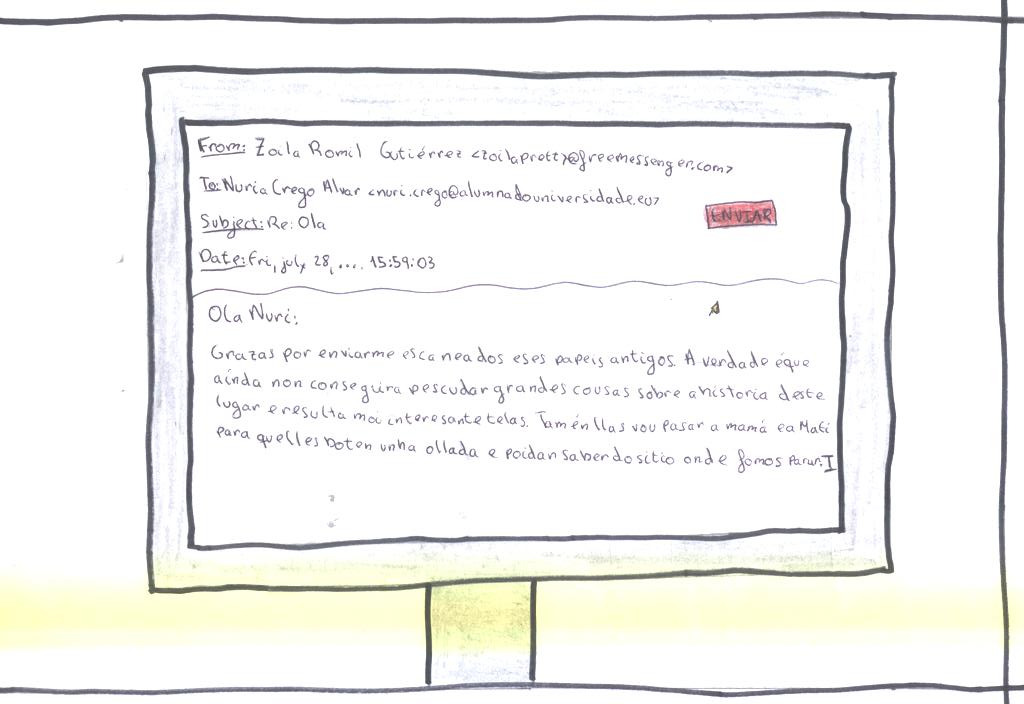 From: Zoila Romil Gutiérrez <zoilaprotty@freemessenger.com>
To: Nuria Crego Alvar <nuri.crego@alumnadouniversidade.eu>
Subject: Re: Ola
ENVIAR
Date: Fri, july 28, .... 15:59:03
Ola Nuri:
Grazas por enviarme escaneados eses papeis antigos. A verdade é que
aínda non conseguira pescudar grandes cousas sobre a historia deste
lugar e resulta moi interesante telas. Tamén llas vou pasar a mamá e a Mati
para que lles boten unha ollada e poidan saber do sitio onde fomos parar.